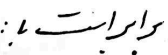 برابر است با: